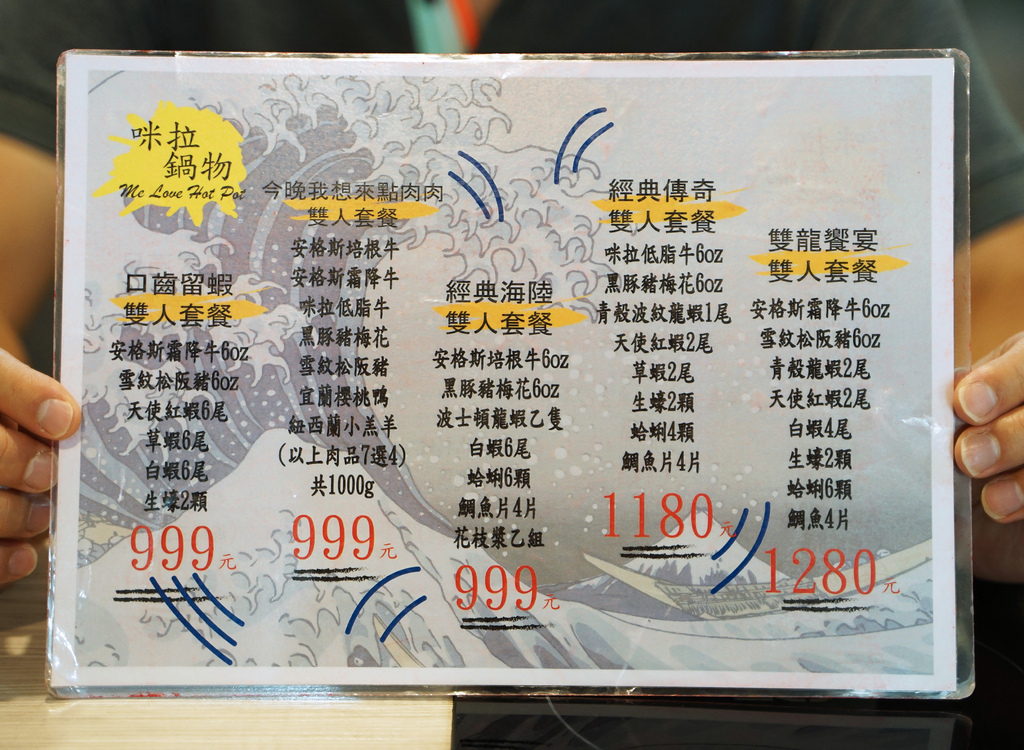 咪拉
鍋物
Me Love Hot Pot
口齒留蝦
雙人套餐
安格斯霜降牛6oz
雪紋松阪豬6oz
天使紅蝦6尾
草蝦6尾
白蝦6尾
生蠔2顆
999元
今晚我想來點肉肉
雙人套餐
安格斯培根牛
安格斯霜降牛
咪拉低脂牛
黑豚豬梅花
雪紋松阪豬
宜蘭櫻桃鴨
紐西蘭小羔羊
(以上肉品7選4)
共1000g
999元
經典海陸
雙人套餐
安格斯培根牛6oz
黑豚豬梅花6oz
波士頓龍蝦乙隻
白蝦6尾
蛤蜊6顆
鯛魚片4片
花枝漿乙組
999元
經典傳奇
雙人套餐
咪拉低脂牛6oz
黑豚豬梅花6oz
青殼波紋龍蝦1尾
天使紅蝦2尾
草蝦2尾
生蠔2顆
蛤蜊4顆
鯛魚片4片
1180元
雙龍饗宴
雙人套餐
安格斯霜降牛6oz
雪紋松阪豬6oz
青殼龍蝦2尾
天使紅蝦2尾
白蝦4尾
生蠔2顆
蛤蜊6顆
鯛魚4片
1280元